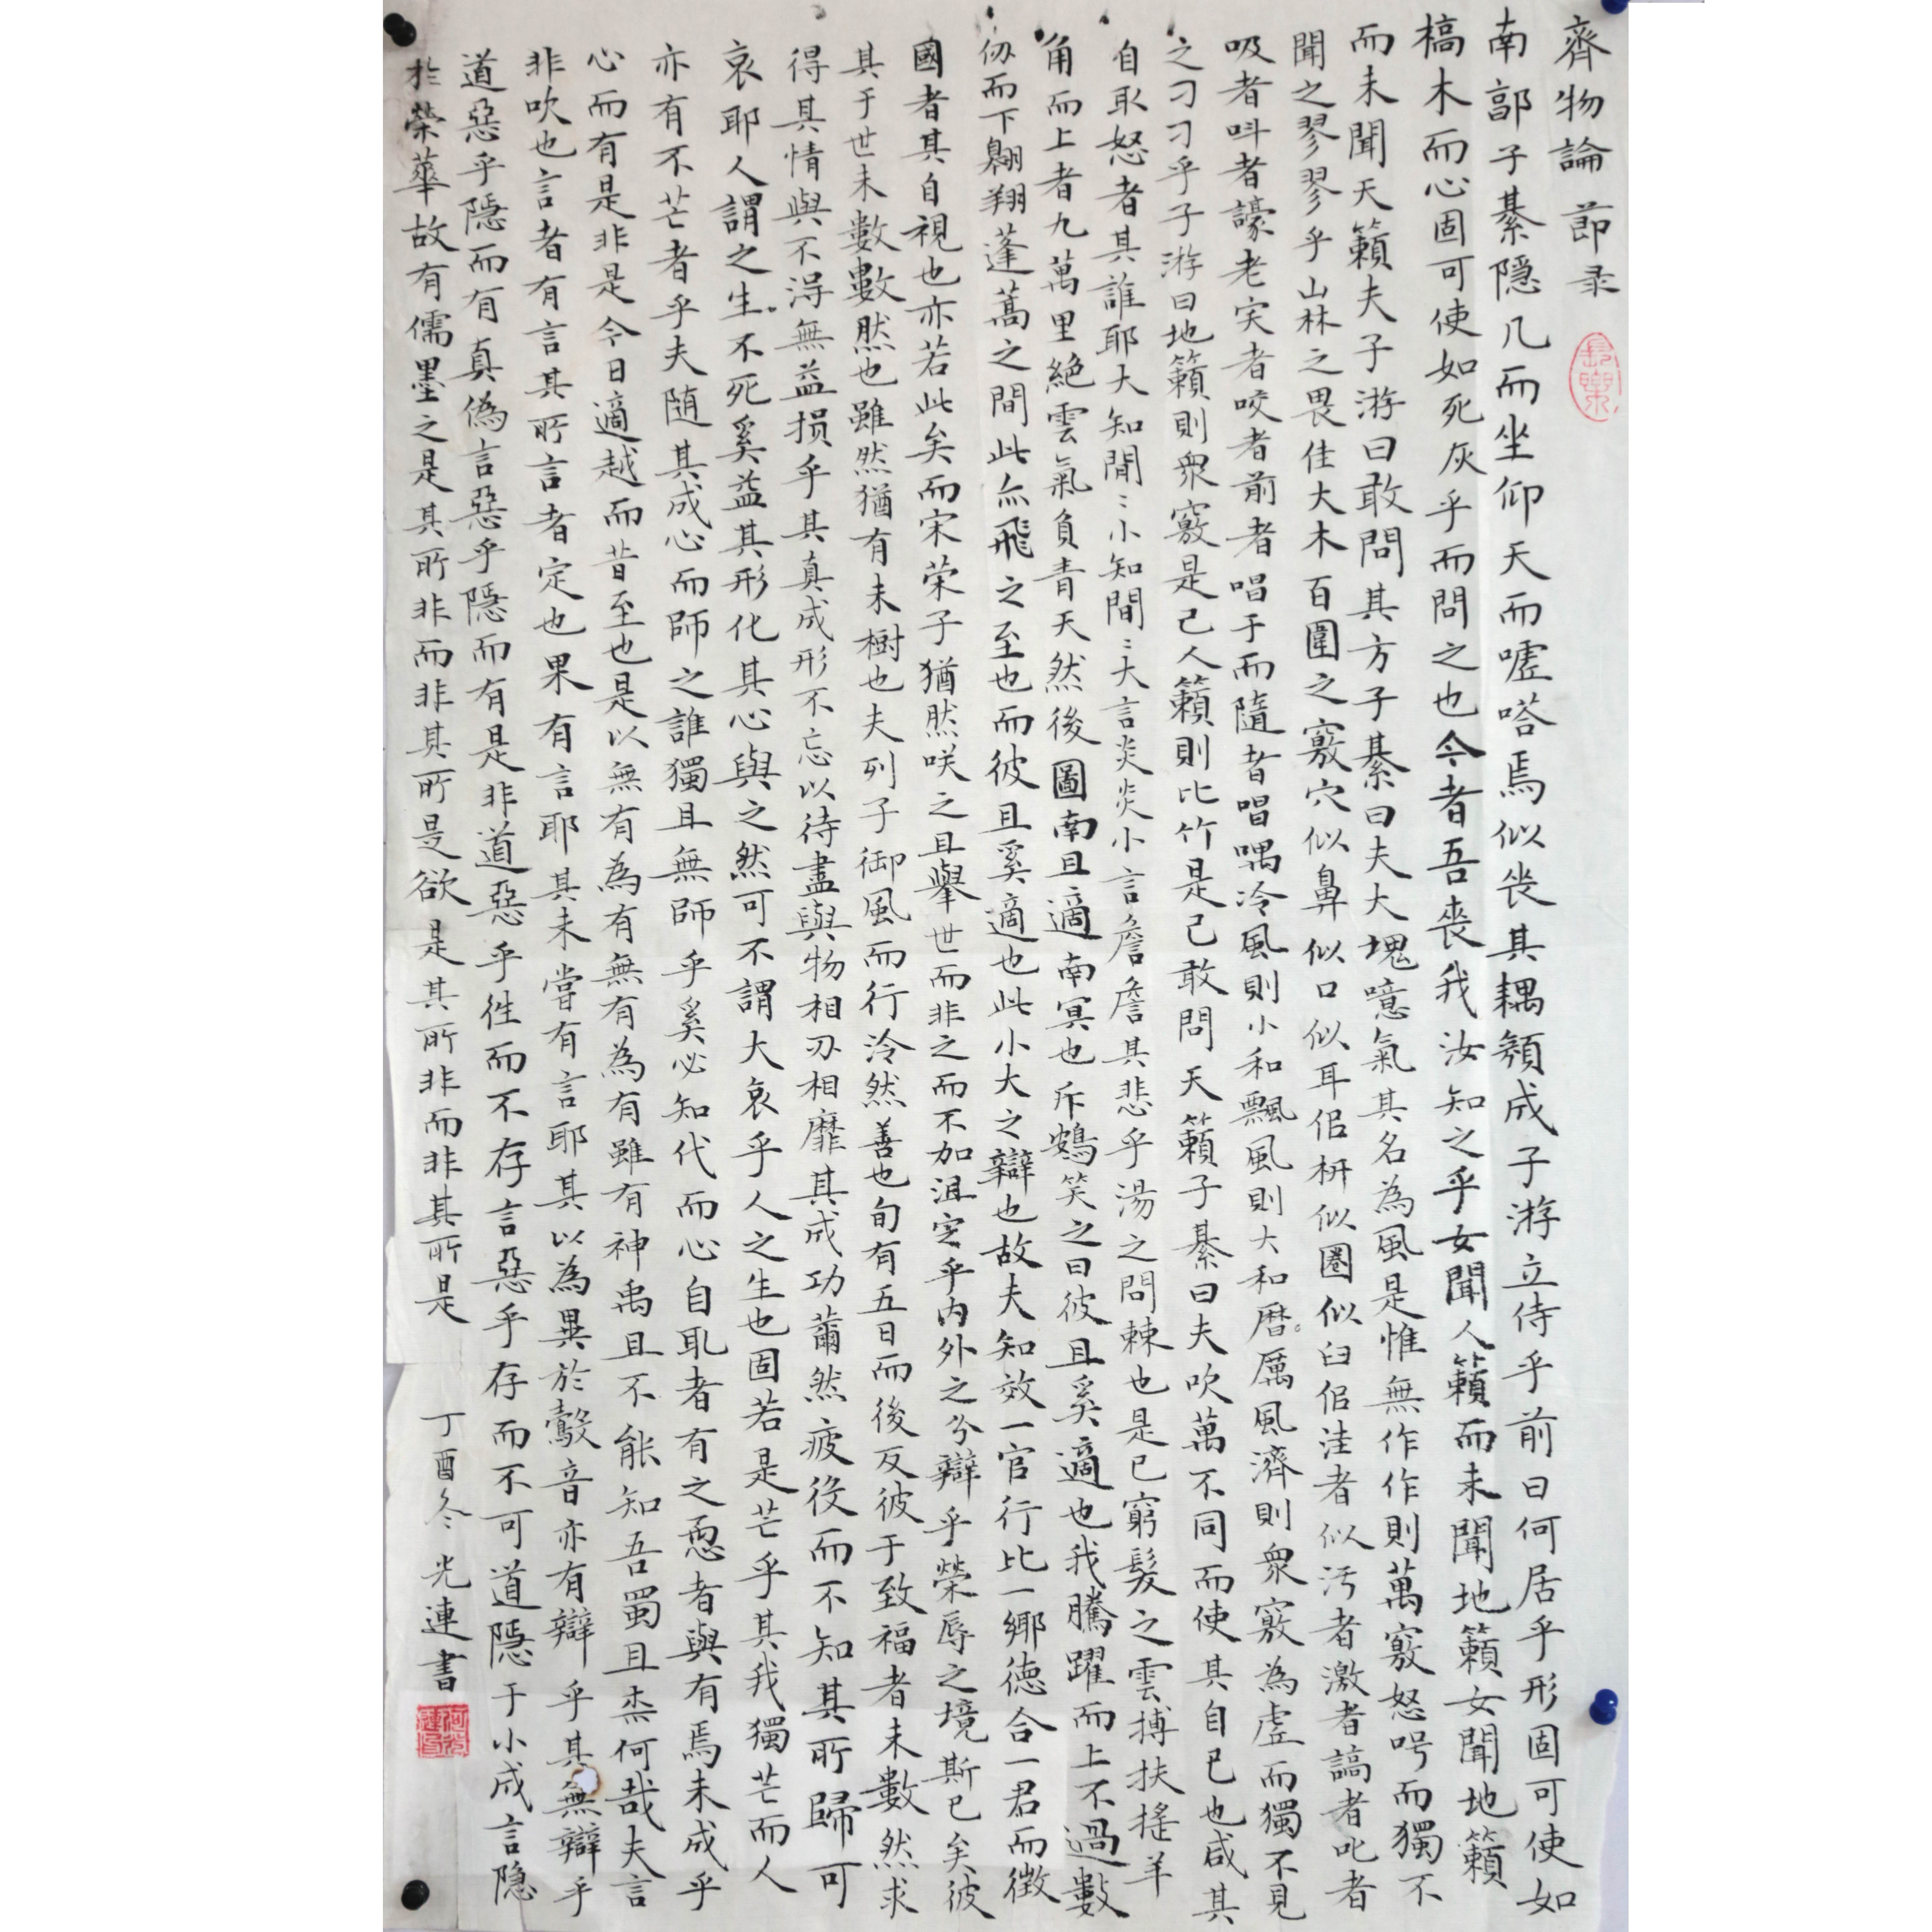 齊物論 節录
長樂
南郭子綦隱几而坐仰天而噓嗒焉似丧其耦顏成子游立侍乎前曰何居乎形固可使如
槁木而心固可使如死灰乎而問之也今者吾喪我汝知之乎女聞人籟而未聞地籟女聞地籟
而未聞天籟夫子游曰敢問其方子綦曰夫大塊噫氣其名為風是惟無作作則萬竅怒呺而獨不
聞之翏翏乎山林之畏佳大木百圍之竅穴似鼻似口似耳似枅似圈似臼似洼者似污者激者謞者叱者
吸者叫者譹者宎者咬者前者唱于而隨者唱喁冷風則小和飄風則大和厲風濟則眾竅為虛而獨不見
之刁刁乎子游曰地籟則眾竅是己人籟則比竹是己敢問天籟子綦曰夫吹萬不同而使其自已也咸其
自取怒者其誰耶大知閒〻小知間〻大言炎炎小言詹詹其悲乎湯之問棘也是已窮髮之雲搏扶搖羊
角而上者九萬里絕雲氣負青天然後圖南且適南冥也斥鴳笑之曰彼且奚適也我騰躍而上不過數
仞而下翱翔蓬蒿之間此亦飛之至也而彼且奚適也此小大之辯也故夫知效一官行比一鄉德合一君而徵
國者其自視也亦若此矣而宋荣子猶然咲之且舉世而非之而不加沮定乎内外之分辯乎榮辱之境斯已矣彼
其于世未數數然也雖然猶有未樹也夫列子御風而行泠然善也旬有五日而後反彼于致福者未數然求
得其情與不得無益損乎其真成形不忘以待盡與物相刃相靡其成功薾然疲役而不知其所歸可
哀耶人謂之生不死奚益其形化其心與之然可不謂大哀乎人之生也固若是芒乎其我獨芒而人
亦有不芒者乎夫随其成心而師之誰獨且無師乎奚必知代而心自取者有之愚者與有焉未成乎
心而有是非是今日適越而昔至也是以無有為有無有為有雖有神禹且不能知吾蜀且柰何哉夫言
非吹也言者有言其所言者定也果有言耶其未嘗有言耶其以為異於鷇音亦有辯乎其無辯乎
道惡乎隱而有真偽言惡乎隱而有是非道惡乎徃而不存言惡乎存而不可道隱于小成言隱
於榮華故有儒墨之是其所非而非其所是欲是其所非而非其所是 丁酉冬 光連書